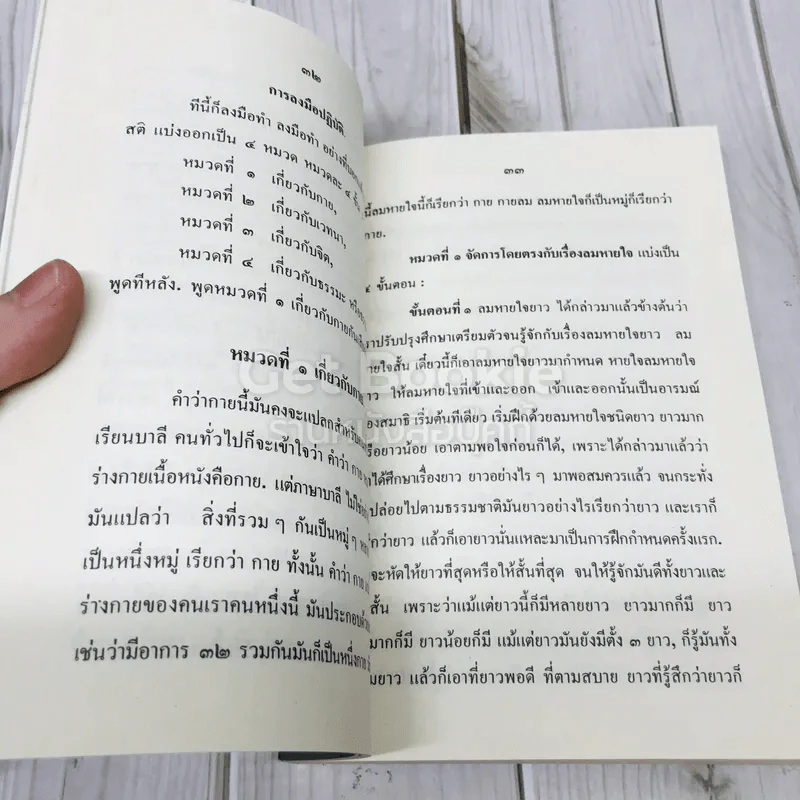 ๓๒
การลงมือปฏิบัติ.
ทีนี้ก็ลงมือทำ ลงมือทำ อย่างที่
สติ แบ่งออกเป็น ๔ หมวด หมวดละ ๔
หมวดที่ ๑ เกี่ยวกับกาย,
หมวดที่ ๒ เกี่ยวกับเวทนา,
หมวดที่ ๓ เกี่ยวกับจิต,
หมวดที่ ๔ เกี่ยวกับธรรมะ
พูดทีหลัง. พูดหมวดที่ ๑ เกี่ยวกับกายกัน
หมวดที่ ๑ เกี่ยวกับกาย
คำว่ากายนี้มันคงจะแปลกสำหรับ
เรียนบาลี คนทั่วไปก็จะเข้าใจว่า คำว่า กาย
ร่างกายเนื้อหนังคือกาย. แต่ภาษาบาลี ไม่ใช่
มันแปลว่า สิ่งที่รวม ๆ กันเป็นหมู่ ๆ
เป็นหนึ่งหมู่ เรียกว่า กาย ทั้งนั้น คำว่า กาย
ร่างกายของคนเราคนหนึ่งนี้ มันประกอบด้วย
เช่นว่ามีอาการ ๓๒ รวมกันมันก็เป็นหนึ่งกาย
๓๓
นี้ลมหายใจนี้ก็เรียกว่า กาย กายลม ลมหายใจก็เป็นหมู่ก็เรียกว่า
กาย.
หมวดที่ ๑ จัดการโดยตรงกับเรื่องลมหายใจ แบ่งเป็น
๔ ขั้นตอน :
ขั้นตอนที่ ๑ ลมหายใจยาว ได้กล่าวมาแล้วข้างต้นว่า
ราปรับปรุงศึกษาเตรียมตัวจนรู้จักกับเรื่องลมหายใจยาว ลม
ายใจสั้น เดี๋ยวนี้ก็เอาลมหายใจยาวมากำหนด หายใจลมหายใจ
าว ให้ลมหายใจที่เข้าและออก เข้าและออกนั้นเป็นอารมณ์
องสมาธิ เริ่มต้นทีเดียว เริ่มฝึกด้วยลมหายใจชนิดยาว ยาวมาก
รือยาวน้อย เอาตามพอใจก่อนก็ได้, เพราะได้กล่าวมาแล้วว่า
าได้ศึกษาเรื่องยาว ยาวอย่างไร ๆ มาพอสมควรแล้ว จนกระทั่ง
ปล่อยไปตามธรรมชาติมันยาวอย่างไรเรียกว่ายาว และเราก็
กว่ายาว แล้วก็เอายาวนั่นแหละมาเป็นการฝึกกำหนดครั้งแรก.
จะหัดให้ยาวที่สุดหรือให้สั้นที่สุด จนให้รู้จักมันดีทั้งยาวและ
สั้น เพราะว่าแม้แต่ยาวนี้ก็มีหลายยาว ยาวมากก็มี ยาว
มากก็มี ยาวน้อยก็มี แม้แต่ยาวมันยังมีตั้ง ๓ ยาว, ก็รู้มันทั้ง
มยาว แล้วก็เอาที่ยาวพอดี ที่ตามสบาย ยาวที่รู้สึกว่ายาวก็
Get Bookie
ร้านหนังสือบุ๊คกี้